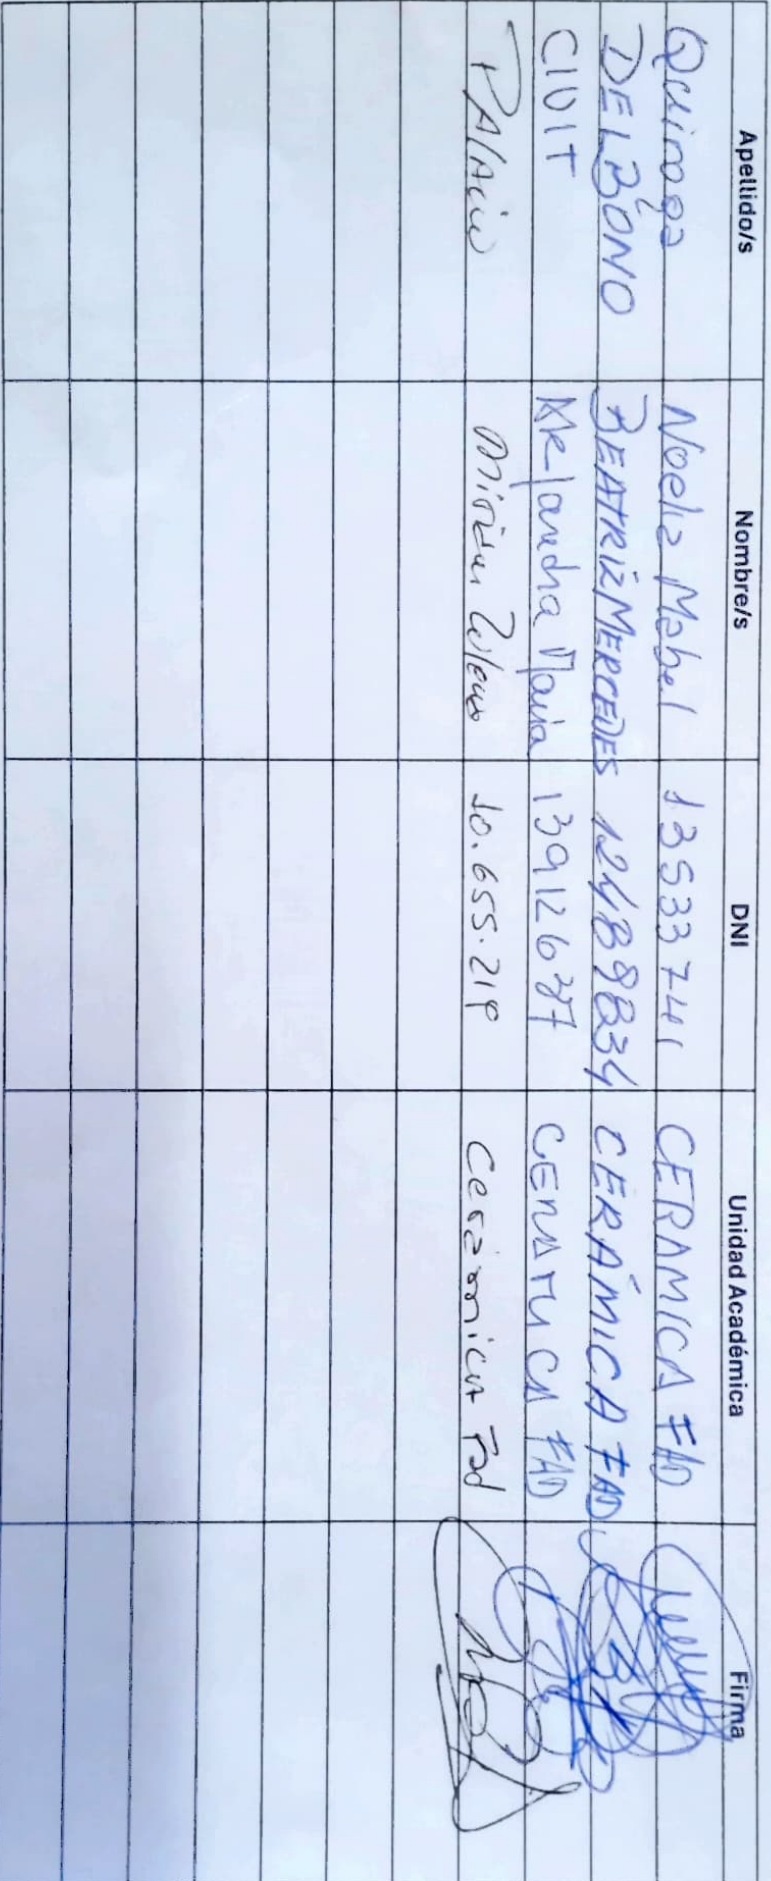 Apellido/s Nombre/s DNI Unidad Académica Firma
Quiroga Noelia Mabel 13533741 CERAMICA FAD
DELBÓNO BEATRIZ MERCEDES 12489834 CERÁMICA FAD
CIVIT Alejandra María 13912637 CERAMICA FAD
PALACIO Miriam 10.655.219 Cerámica Fad